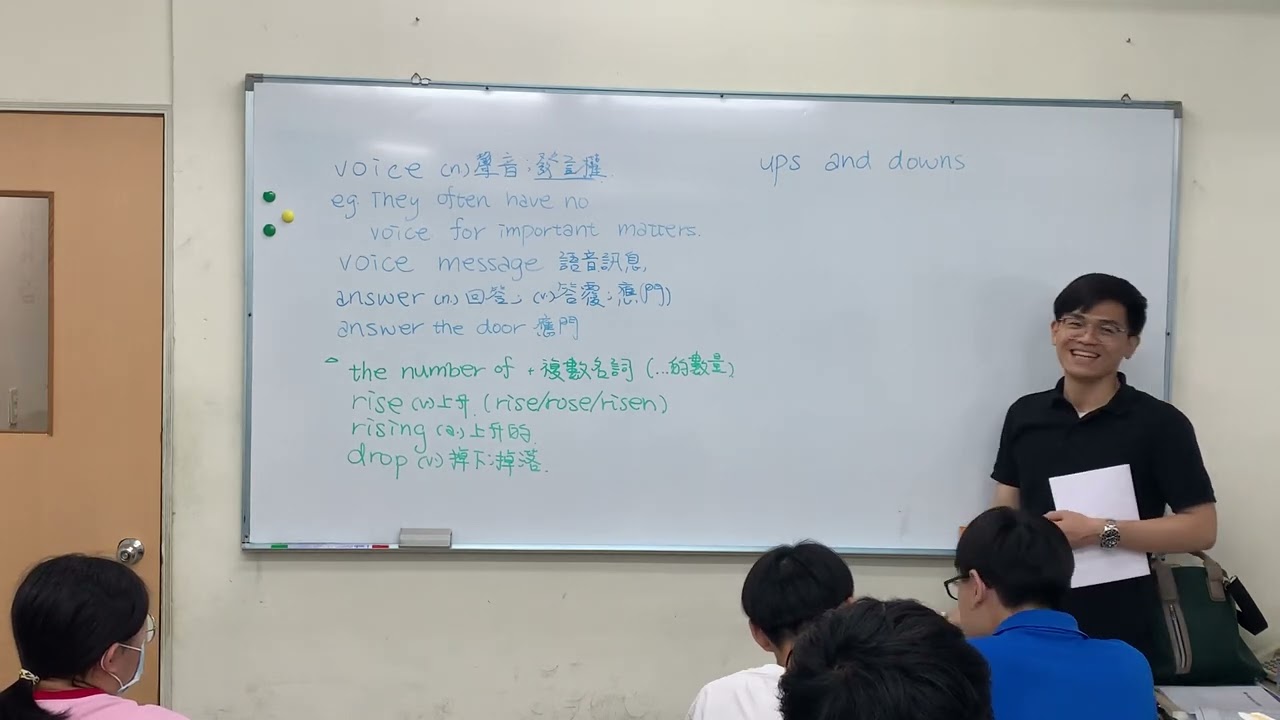 voice (n) 聲音；發言權.
eg. They often have no
voice for important matters.
voice message 語音訊息.
answer (n) 回答； (v) 答覆；應(門)
answer the door 應門
the number of + 複數名詞 (...的數量)
rise (v) 上升. (rise/rose/risen)
rising (a.) 上升的.
drop (v) 掉下；掉落.
ups and downs